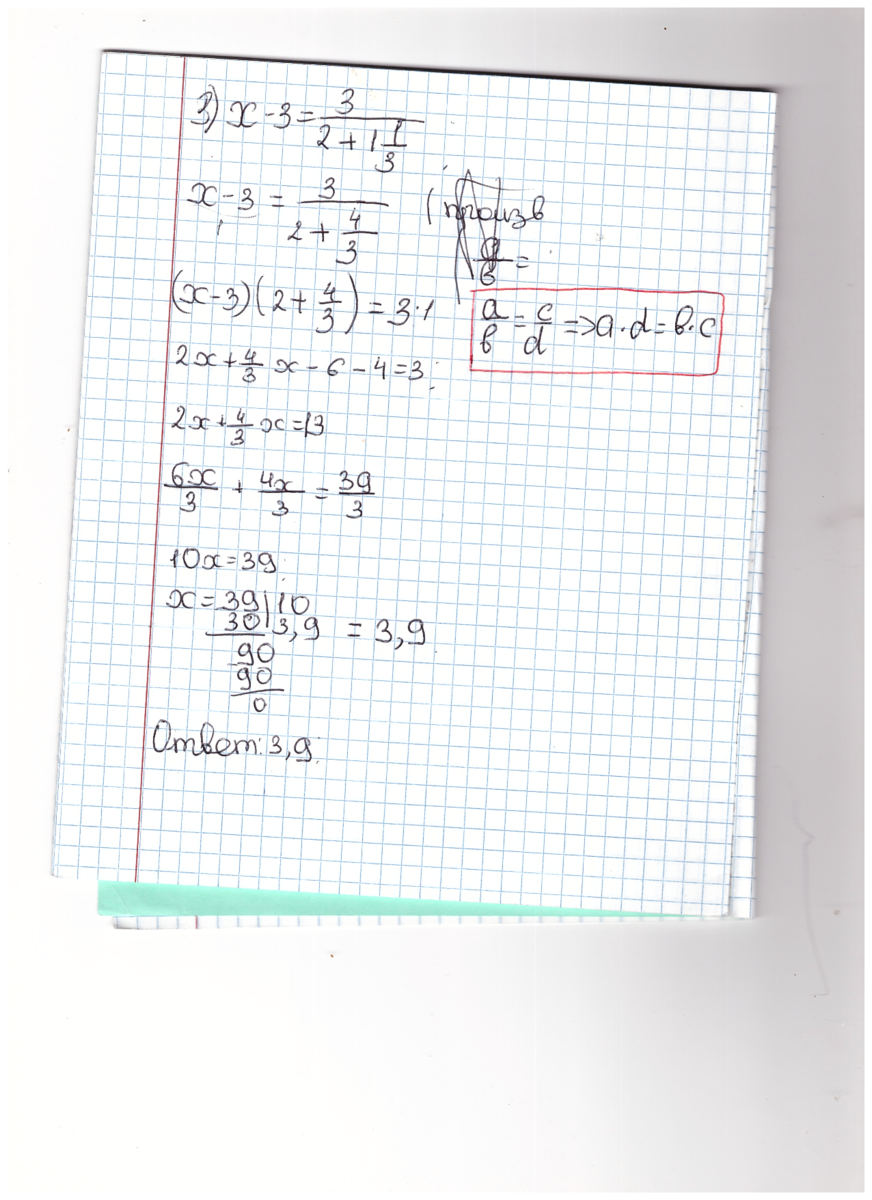 3) x - 3 = 3 / (2 + 1 1/3)
x - 3 = 3 / (2 + 4/3) (произв
a/в =
(x - 3)(2 + 4/3) = 3·1
a/в = c/d => a·d = в·c
2x + 4/3 x - 6 - 4 = 3;
2x + 4/3 x = 13
6x/3 + 4x/3 = 39/3
10x = 39;
x = 39|10
30|3,9 = 3,9
90
90
0
Ответ: 3,9.